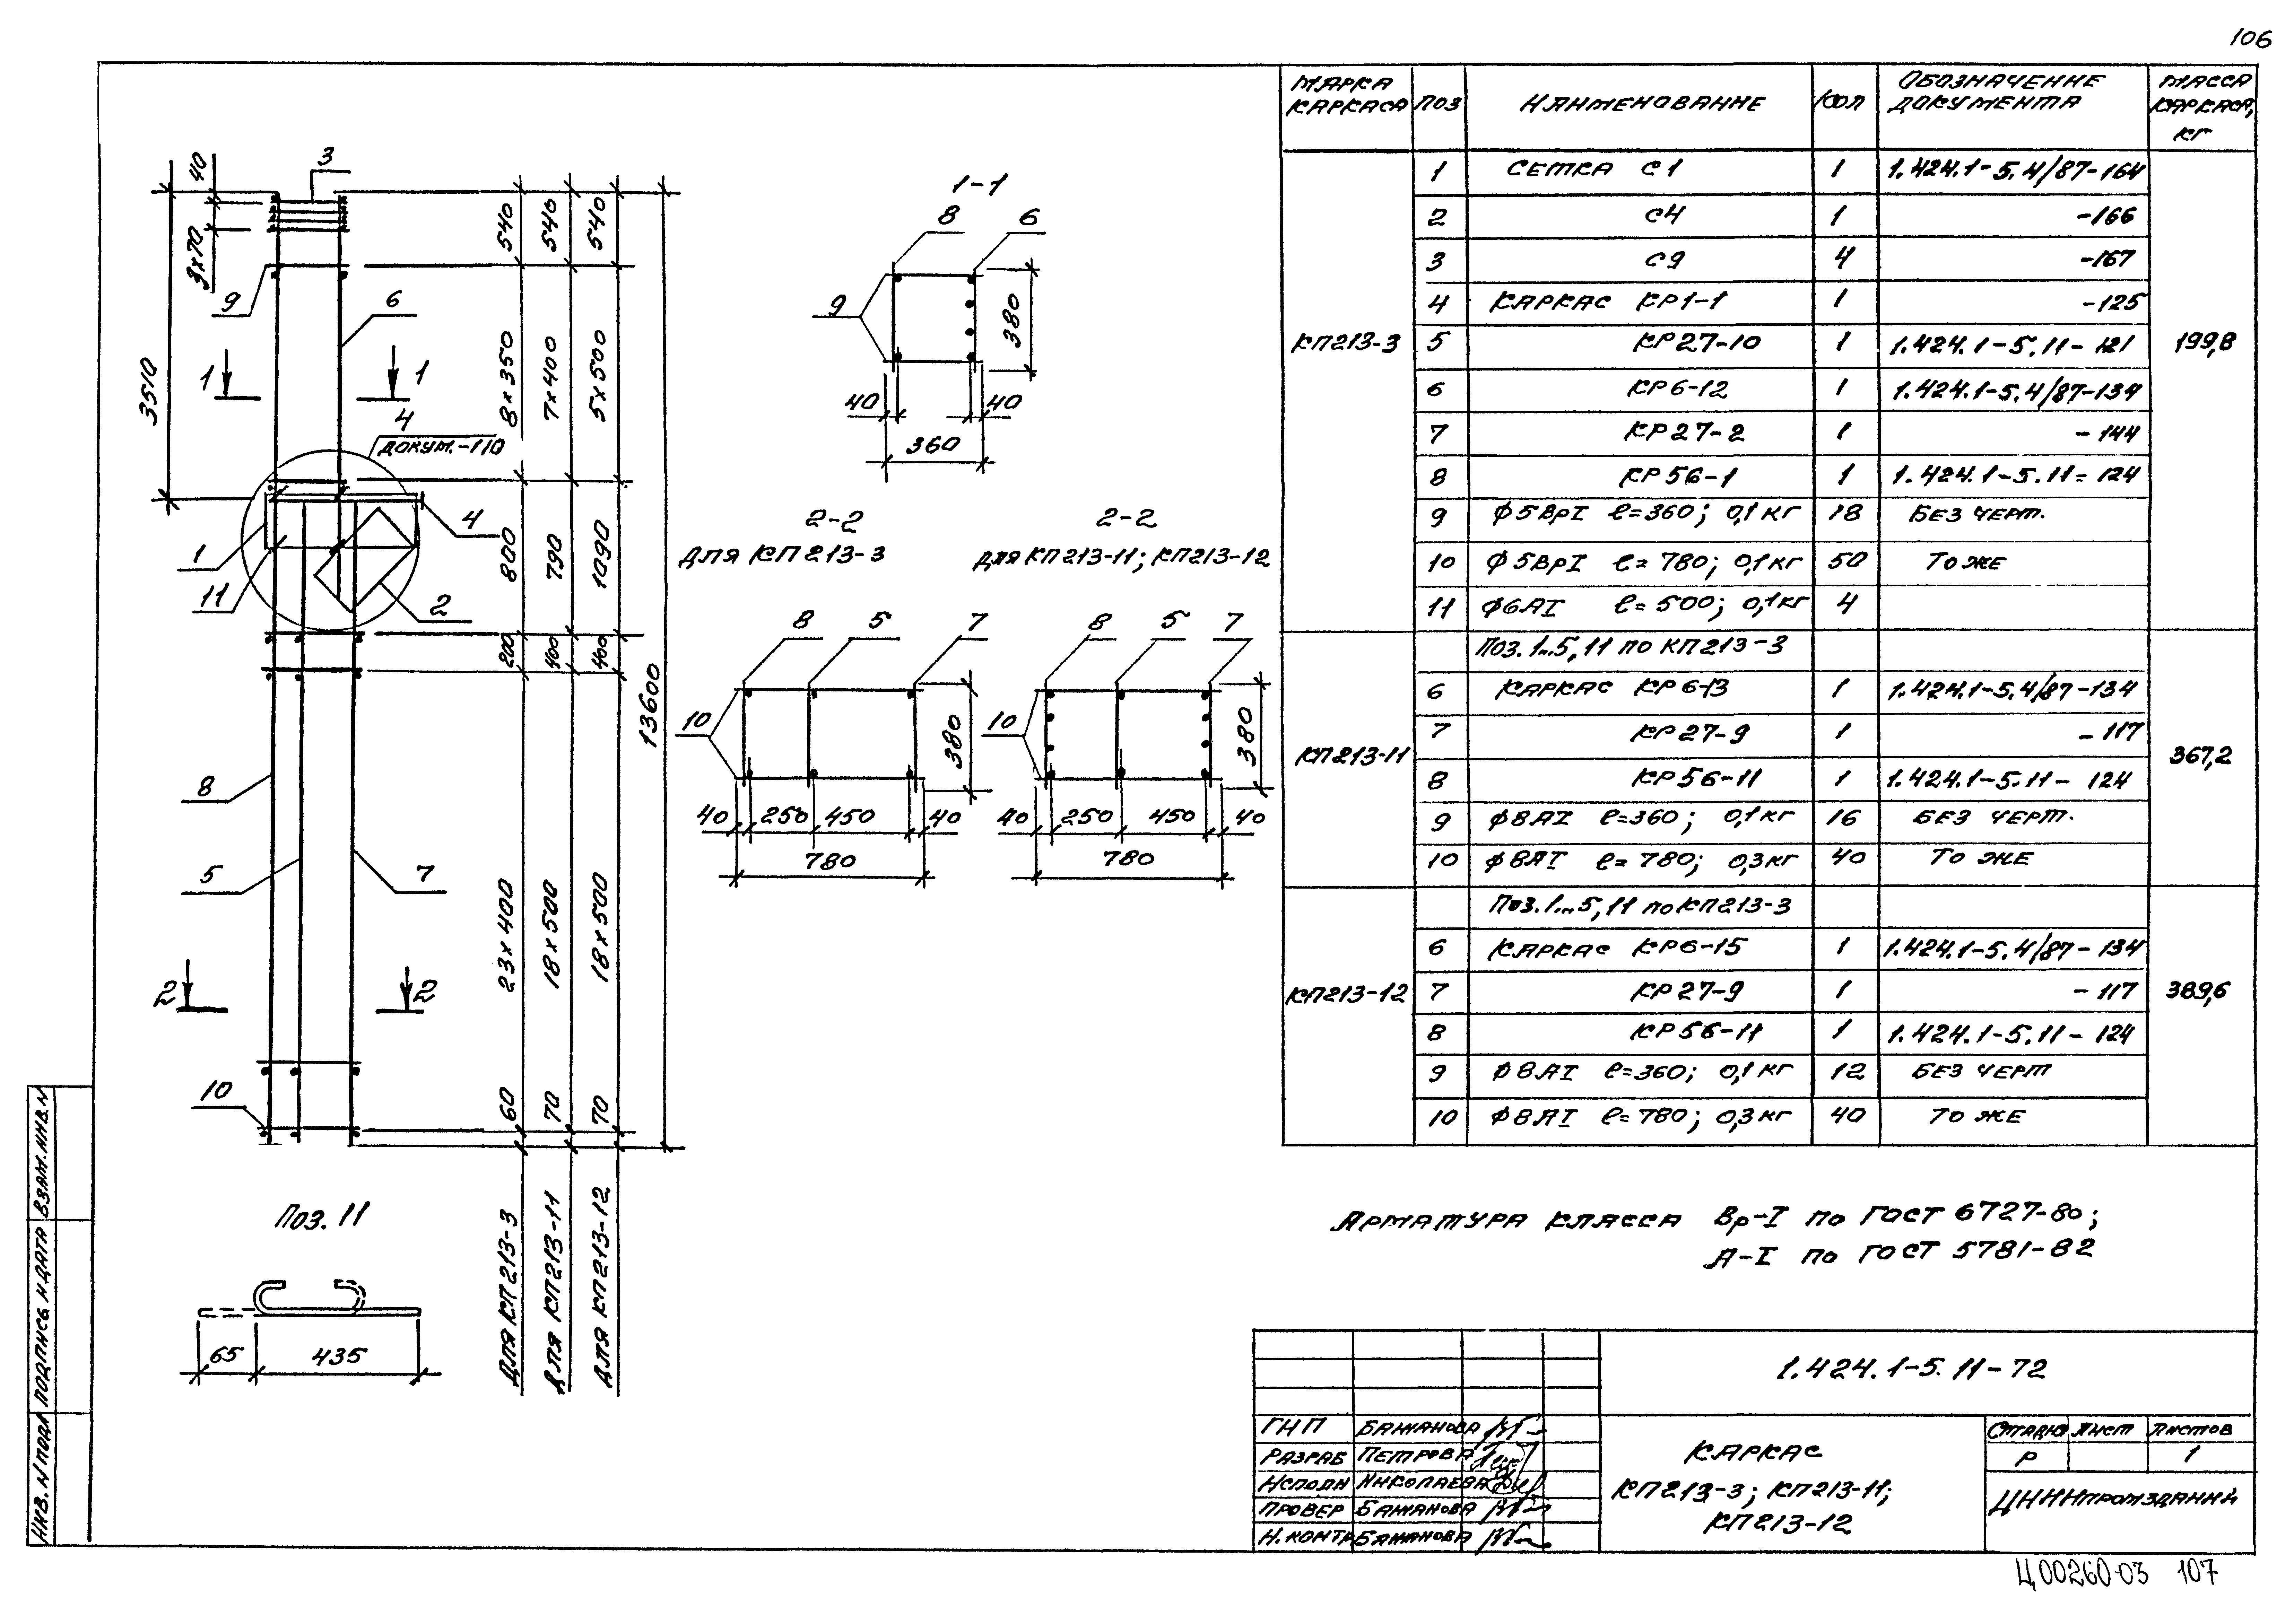 106
МАРКА КАРКАСА ПОЗ НАИМЕНОВАНИЕ КОЛ ОБОЗНАЧЕНИЕ ДОКУМЕНТА МАССА КАРКАСА, КГ
КП213-3 199,8
1 СЕТКА С1 1 1.424.1-5.4/87-164
2 С4 1 -166
3 С9 4 -167
4 КАРКАС КР1-1 1 -125
5 КР27-10 1 1.424.1-5.11-121
6 КР6-12 1 1.424.1-5.4/87-134
7 КР27-2 1 -144
8 КР56-1 1 1.424.1-5.11-124
9 ϕ5ВрI ℓ=360; 0,1кг 18 БЕЗ ЧЕРТ.
10 ϕ5ВрI ℓ=780; 0,1кг 50 ТО ЖЕ
11 ϕ6АI ℓ=500; 0,1кг 4
КП213-11 367,2
Поз.1...5,11 по КП213-3
6 КАРКАС КР6-13 1 1.424.1-5.4/87-134
7 КР27-9 1 -117
8 КР56-11 1 1.424.1-5.11-124
9 ϕ8АI ℓ=360; 0,1кг 16 БЕЗ ЧЕРТ.
10 ϕ8АI ℓ=780; 0,3кг 40 ТО ЖЕ
КП213-12 389,6
Поз.1...5,11 по КП213-3
6 КАРКАС КР6-15 1 1.424.1-5.4/87-134
7 КР27-9 1 -117
8 КР56-11 1 1.424.1-5.11-124
9 ϕ8АI ℓ=360; 0,1кг 12 БЕЗ ЧЕРТ
10 ϕ8АI ℓ=780; 0,3кг 40 ТО ЖЕ
40
3х70
3510
3
9
6
1 1
4
ДОКУМ.-110
4
1
11
2
8
5
7
2 2
10
540 8х350 800 200 23х400 60 ДЛЯ КП213-3
540 7х400 790 400 18х500 70 ДЛЯ КП213-11
540 5х500 1090 400 18х500 70 ДЛЯ КП213-12
13600
1-1
8 6
9
380
40 40
360
2-2
ДЛЯ КП213-3
8 5 7
10
380
40 250 450 40
780
2-2
ДЛЯ КП213-11; КП213-12
8 5 7
10
380
40 250 450 40
780
Поз. 11
65 435
АРМАТУРА КЛАССА Вр-I по ГОСТ 6727-80;
А-I по ГОСТ 5781-82
1.424.1-5.11-72
ГИП БАЖАНОВА
РАЗРАБ ПЕТРОВА
ИСПОЛН НИКОЛАЕВА
ПРОВЕР БАЖАНОВА
Н.КОНТР БАЖАНОВА
КАРКАС
КП213-3; КП213-11;
КП213-12
СТАДИЯ ЛИСТ ЛИСТОВ
Р 1
ЦНИИПРОМЗДАНИЙ
ИНВ.N ПОДЛ ПОДПИСЬ И ДАТА ВЗАМ.ИНВ.N
Ц00260-03 107